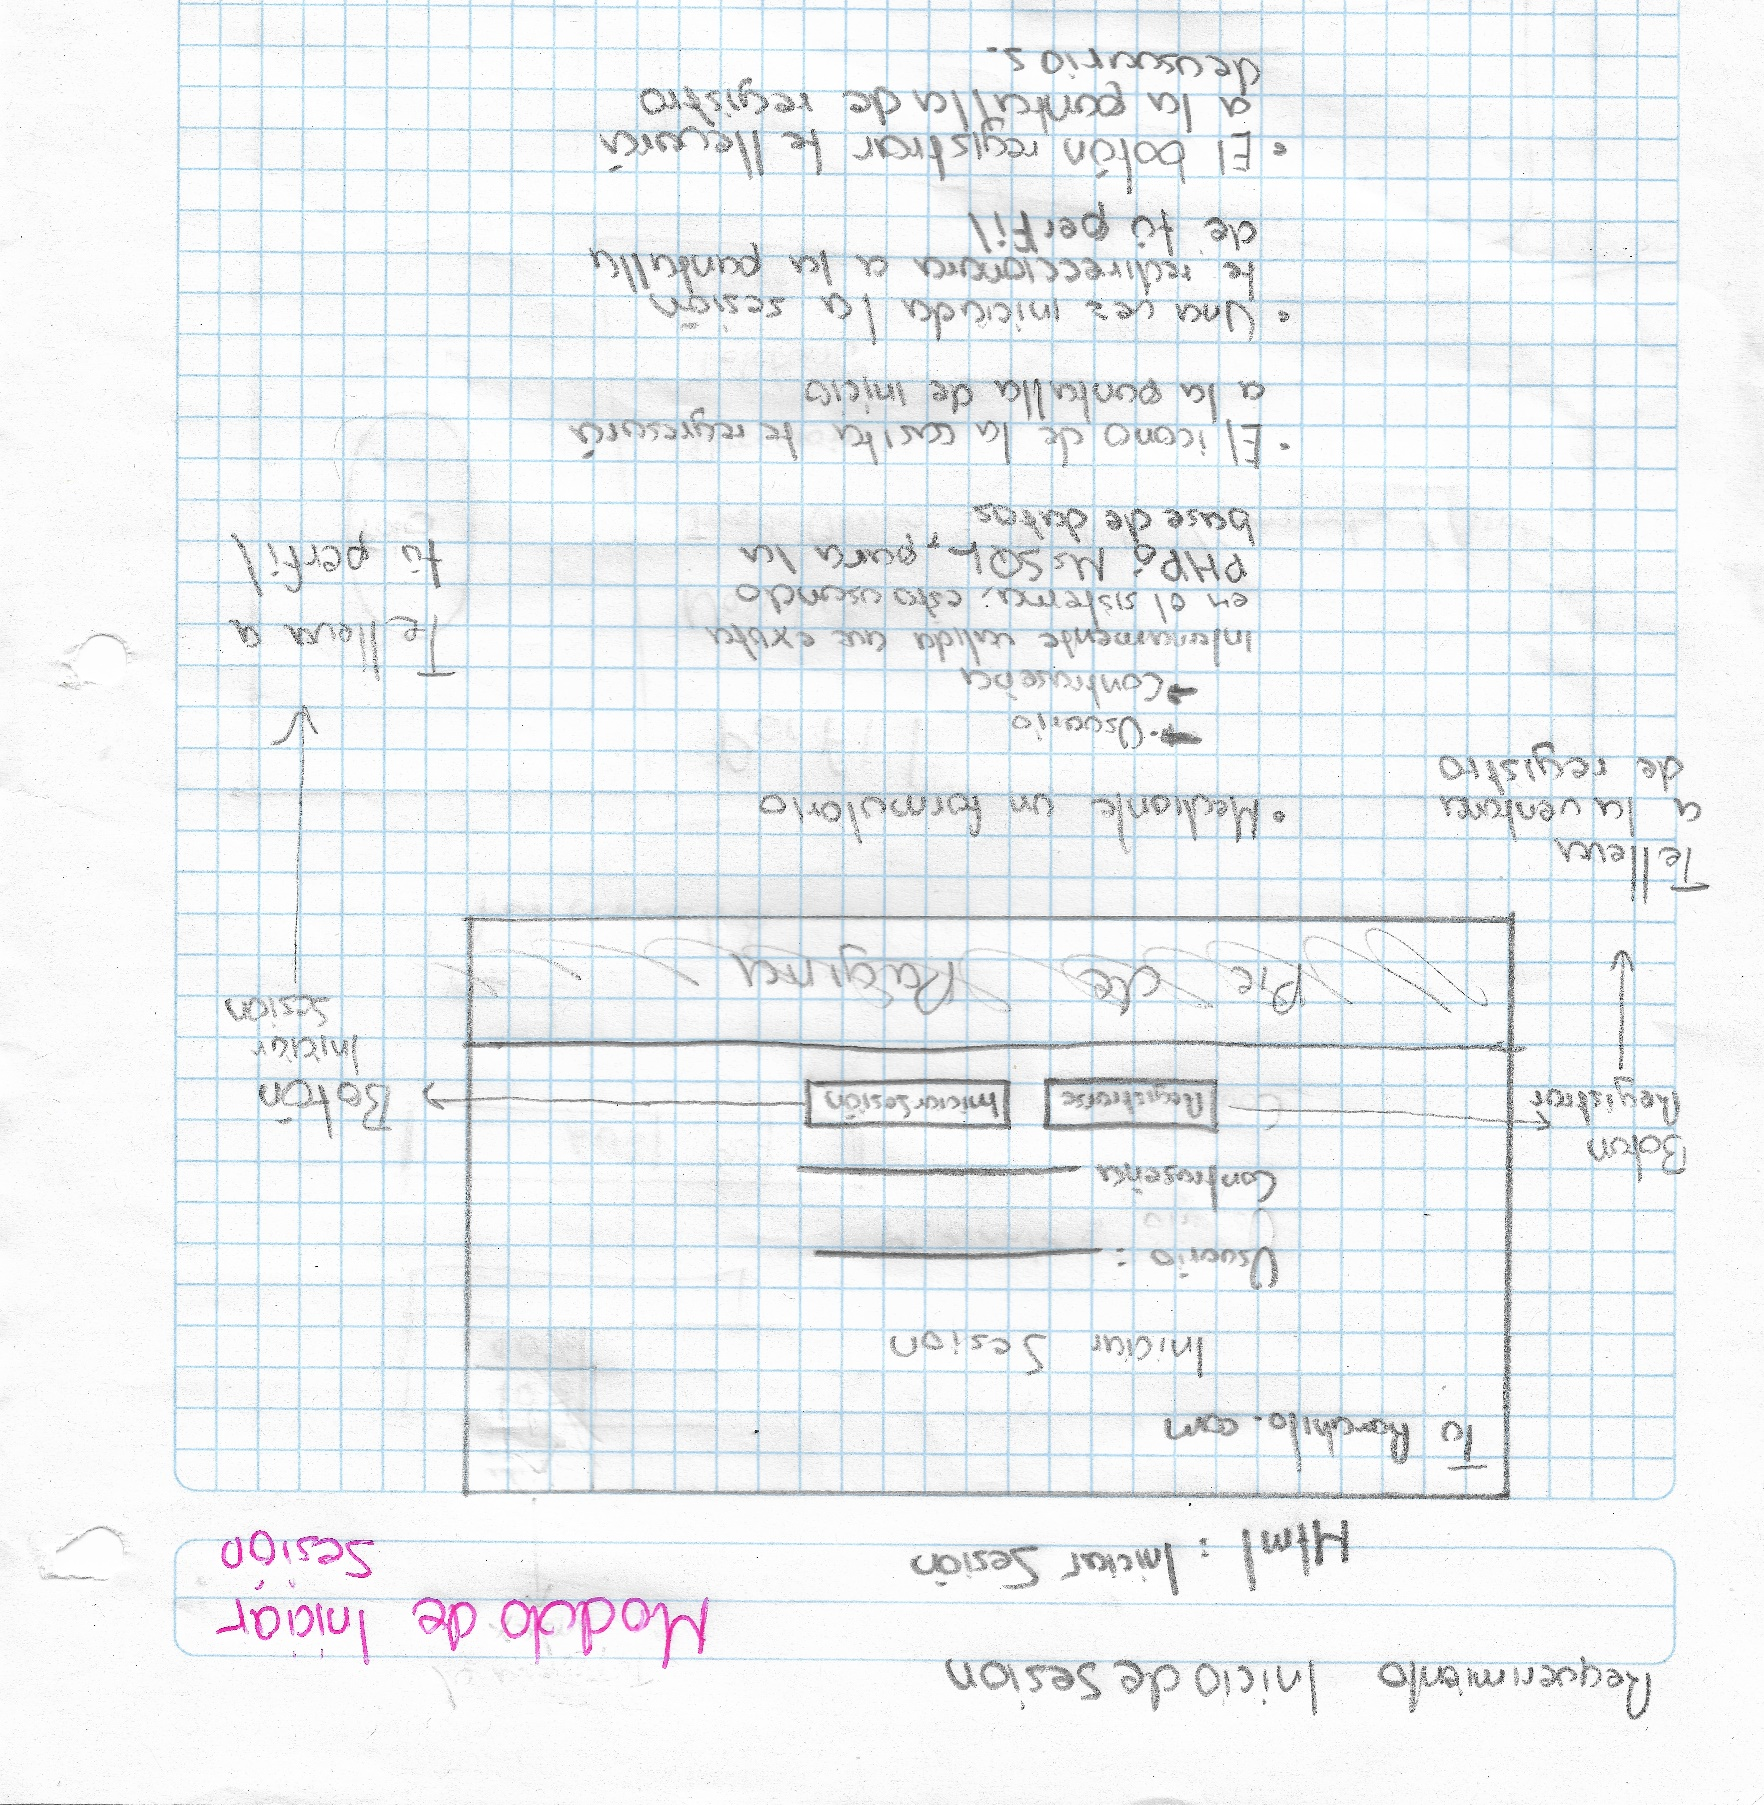 Requerimiento Inicio de Sesion
Modulo de Iniciar
Sesión
Html : Iniciar Sesión
Tu Ranchito.com
Iniciar Sesion
Usuario :
Contraseña
Registrarse
Iniciar Sesión
Pie de Pagina
Boton
Registrar
Te lleva
a la ventana
de registro
Botón
Iniciar
Sesion
Te lleva a
tú perfil
• Mediante un formulario
→ • Usuario
→ Contraseña
internamente valida que exista
en el sistema. esto usando
PHP y MySQL, para la
base de datos
• El icono de la casita te regresará
a la pantalla de inicio
• Una vez iniciada la sesión
te redireccionara a la pantalla
de tú perfil
• El botón registrar te llevará
a la pantalla de registro
de usuarios.